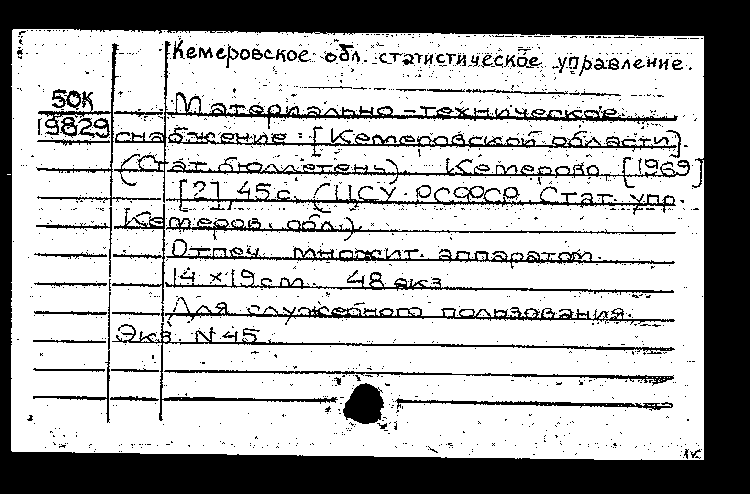 Кемеровское обл. статистическое управление.
50К
19829
Материально-техническое
снабжение. [Кемеровской области].
(Стат. бюллетень). Кемерово, [1969]
[2], 45 с. (ЦСУ РСФСР. Стат. упр.
Кемеров. обл.).
Отпеч. множит. аппаратом.
14 × 19 cm. 48 экз.
Для служебного пользования.
Экз. N 45.